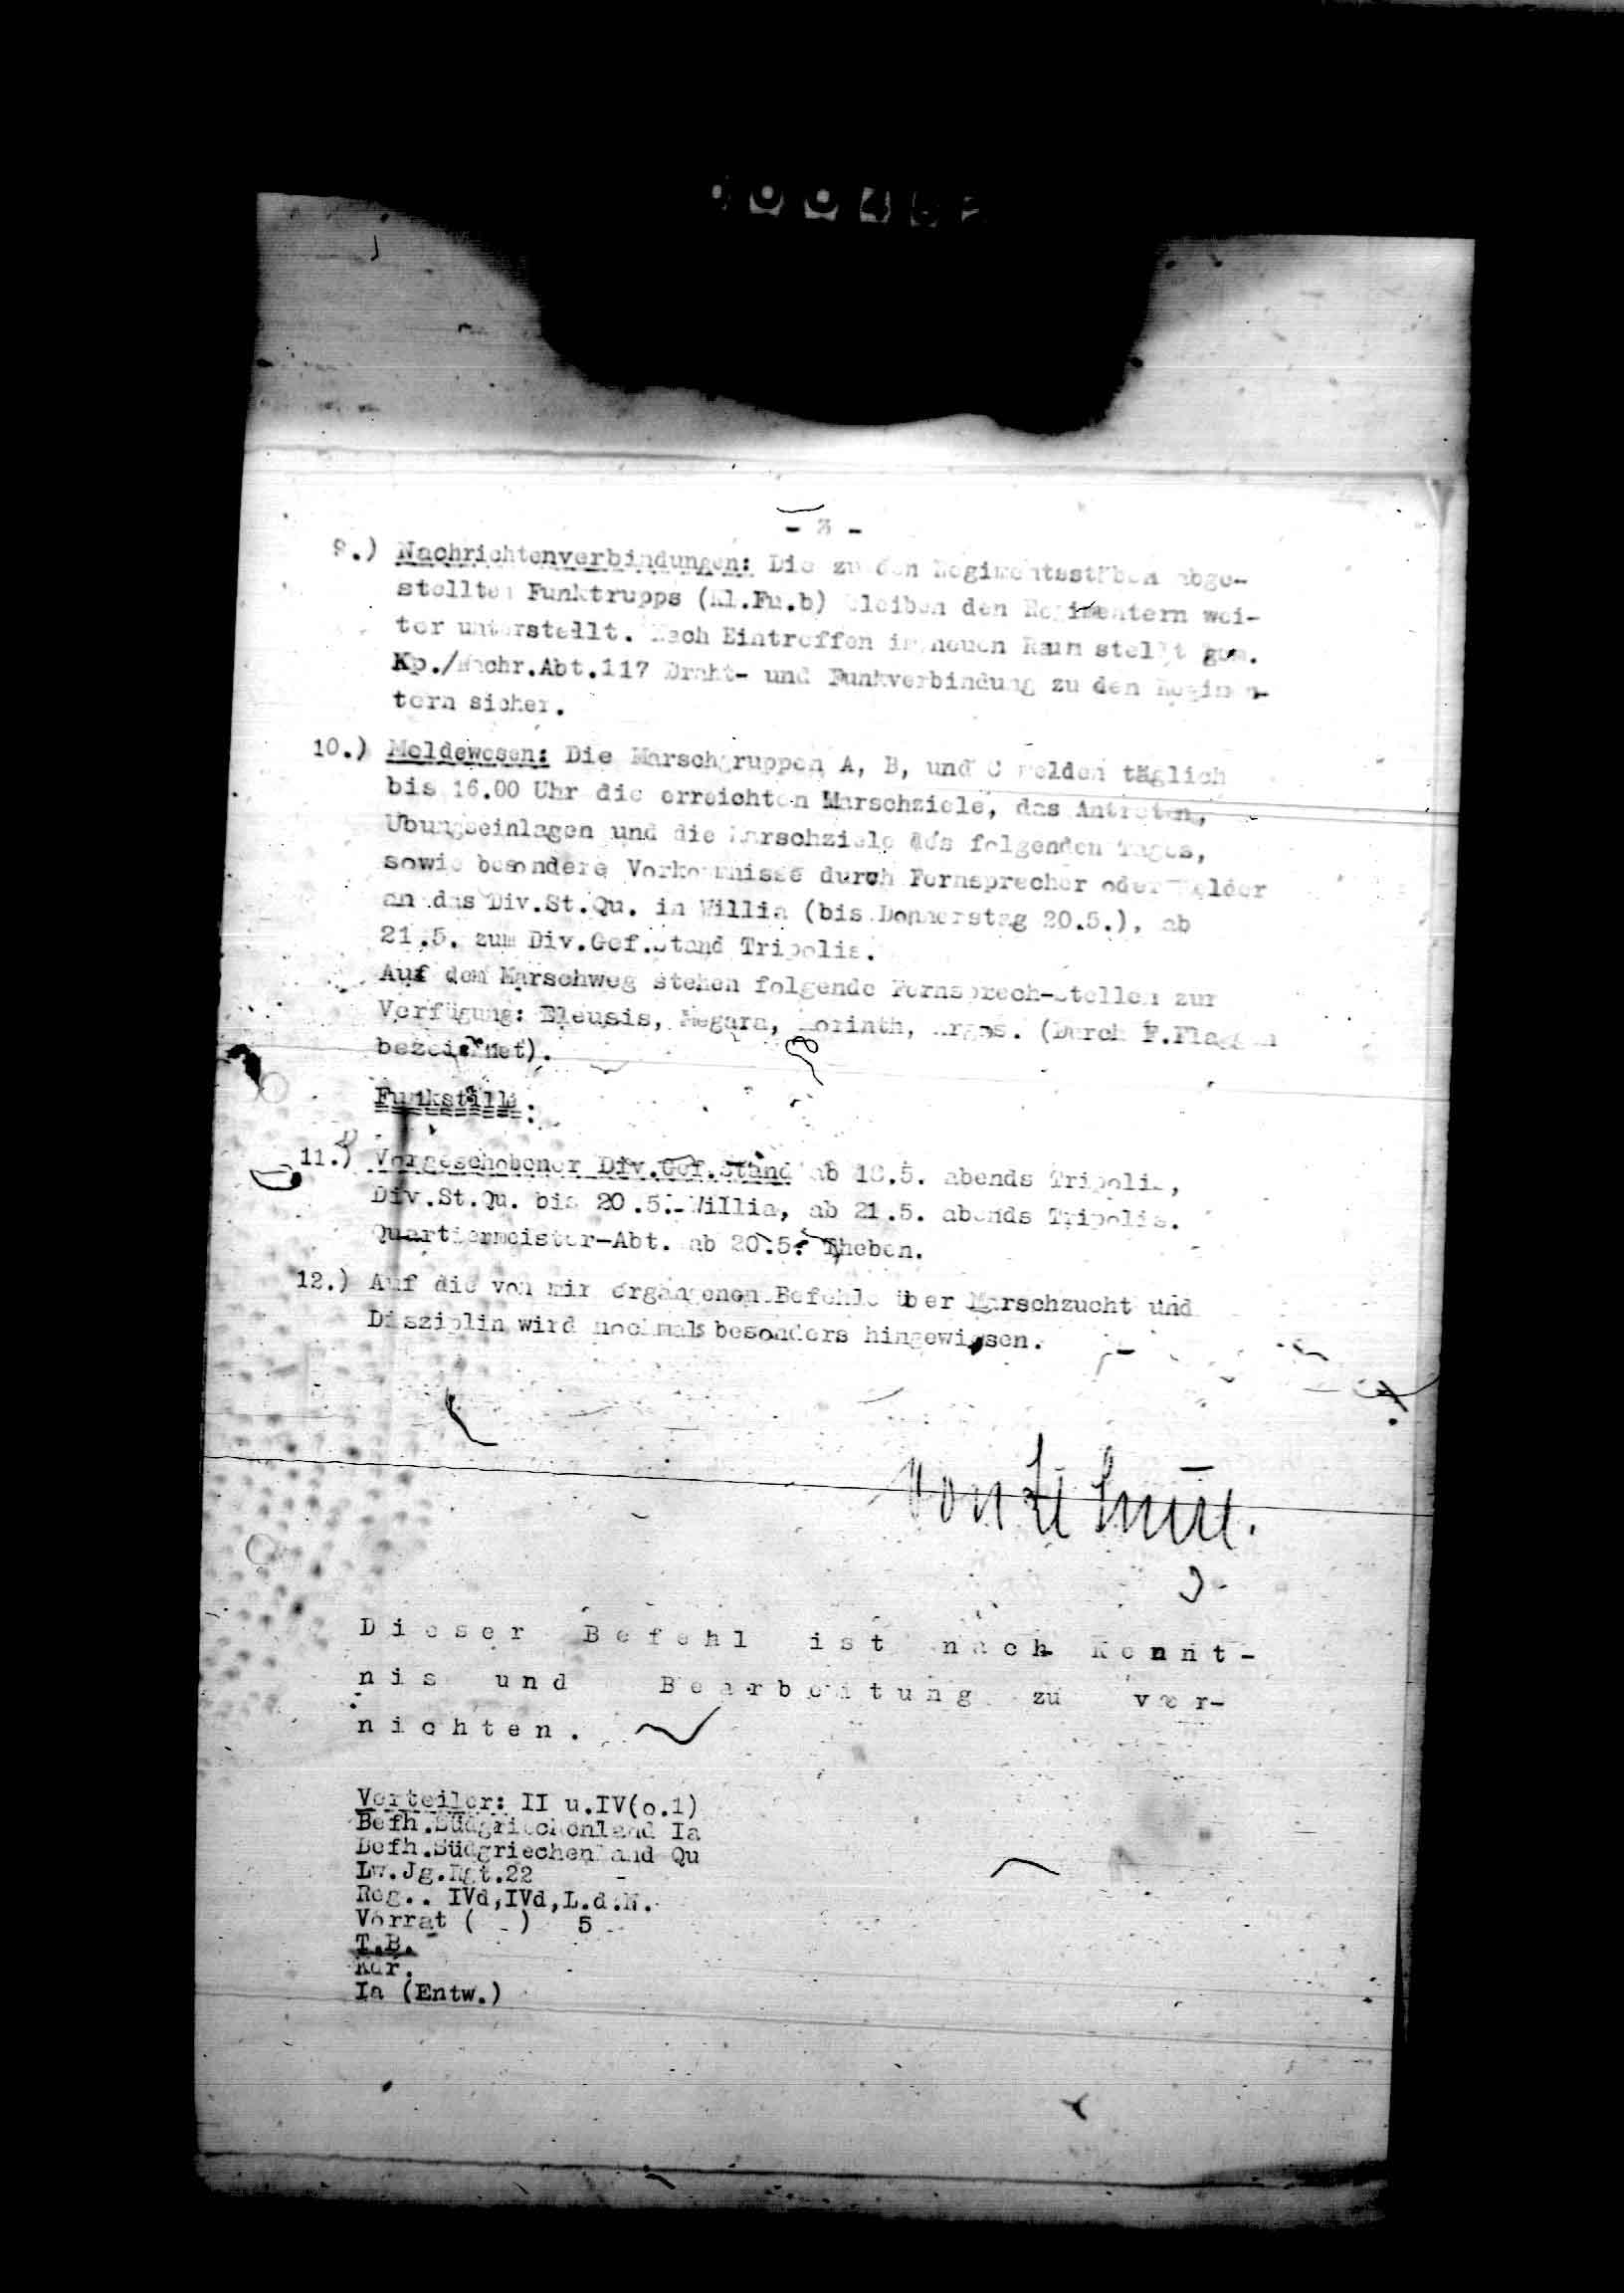 - 3 -
9.) Nachrichtenverbindungen: Die zu den Regimentsstäben abge-
stellten Funktrupps (Kl.Fu.b) bleiben den Regimentern wei-
ter unterstellt. Nach Eintreffen im neuen Raum stellt gem.
Kp./Nachr.Abt.117 Draht- und Funkverbindung zu den Regimen-
tern sicher.
10.) Meldewesen: Die Marschgruppen A, B, und C melden täglich
bis 16.00 Uhr die erreichten Marschziele, das Antreten,
Übungseinlagen und die Marschziele des folgenden Tages,
sowie besondere Vorkommnisse durch Fernsprecher oder Melder
an das Div.St.Qu. in Willia (bis Donnerstag 20.5.), ab
21.5. zum Div.Gef.Stand Tripolis.
Auf dem Marschweg stehen folgende Fernsprech-Stellen zur
Verfügung: Eleusis, Megara, Korinth, Argos. (Durch F.Flaggen
bezeichnet).
Funkstille.
11.) Vorgeschobener Div.Gef.Stand ab 18.5. abends Tripolis,
Div.St.Qu. bis 20.5. Willia, ab 21.5. abends Tripolis.
Quartiermeister-Abt. ab 20.5. Theben.
12.) Auf die von mir ergangenen Befehle über Marschzucht und
Disziplin wird nochmals besonders hingewiesen.
Dieser Befehl ist nach Kennt-
nis und Bearbeitung zu ver-
nichten.
Verteiler: II u.IV(o.1)
Befh.Südgriechenland Ia
Befh.Südgriechenland Qu
Lw.Jg.Rgt.22
Reg.. IVd,IVd,L.d.N.
Vorrat ( ) 5
T.B.
Kdr.
Ia (Entw.)